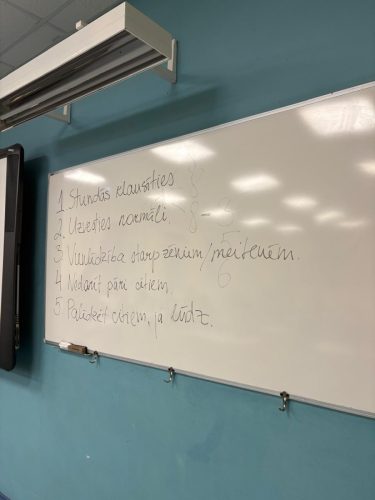 1. Stundās klausīties
2. Uzvesties normāli.
3. Vienlīdzība starp zēniem/meitenēm.
4. Nedarīt pāri citiem.
5. Palīdzēt citiem, ja lūdz.